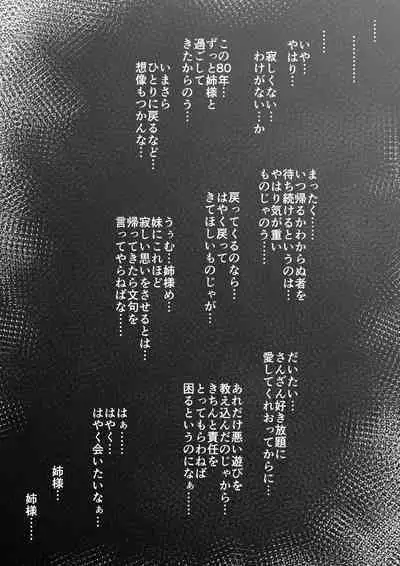 ……
……
いや…
やはり…
寂しくない…
わけがない…か
この80年…
ずっと姉様と
過ごして
きたからのう…
いまさら
ひとりに戻るなど…
想像もつかんな…
まったく……
いつ帰るかわからぬ者を
待ち続けるというのは…
やはり気が重い
ものじゃのう……
戻ってくるのなら…
はやく戻って
きてほしいものじゃが…
うぅむ…姉様め…
妹にこれほど
寂しい思いをさせるとは…
帰ってきたら文句を
言ってやらねばな……
だいたい…
さんざん好き放題に
愛してくれおってからに…
あれだけ悪い遊びを
教え込んだのじゃから…
きちんと責任を
とってもらわねば
困るというのになぁ…
はぁ……
はやく…
はやく会いたいなぁ…
姉様…
姉様……